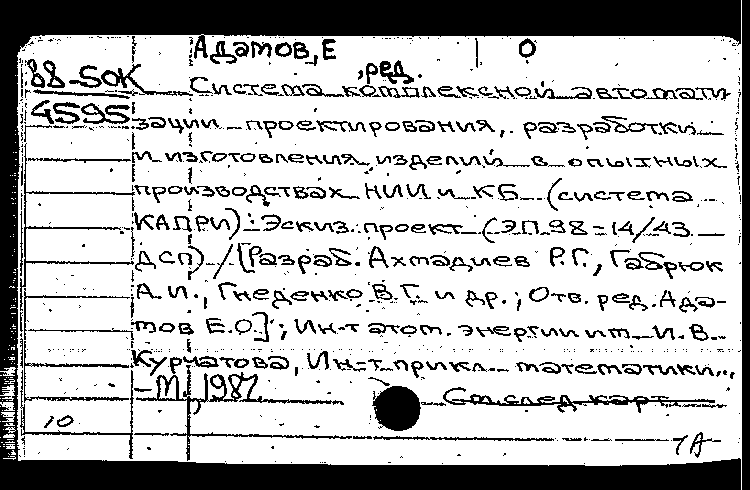 Адамов, Е О
, ред.
88-5ОК Система комплексной автомати
4595 зации проектирования, разработки
и изготовления изделий в опытных
производствах НИИ и КБ (система
КАПРИ): Эскиз. проект (ЭП.98-14/43
ДСП) / [Разраб. Ахмадиев Р.Г., Габрюк
А.И., Гнеденко В.Г. и др.; Отв. ред. Ада-
мов Е.О.]; Ин-т атом. энергии им. И.В.
Курчатова, Ин-т прикл. математики..,
-М., 1987.
См. след. карт.
10
1А